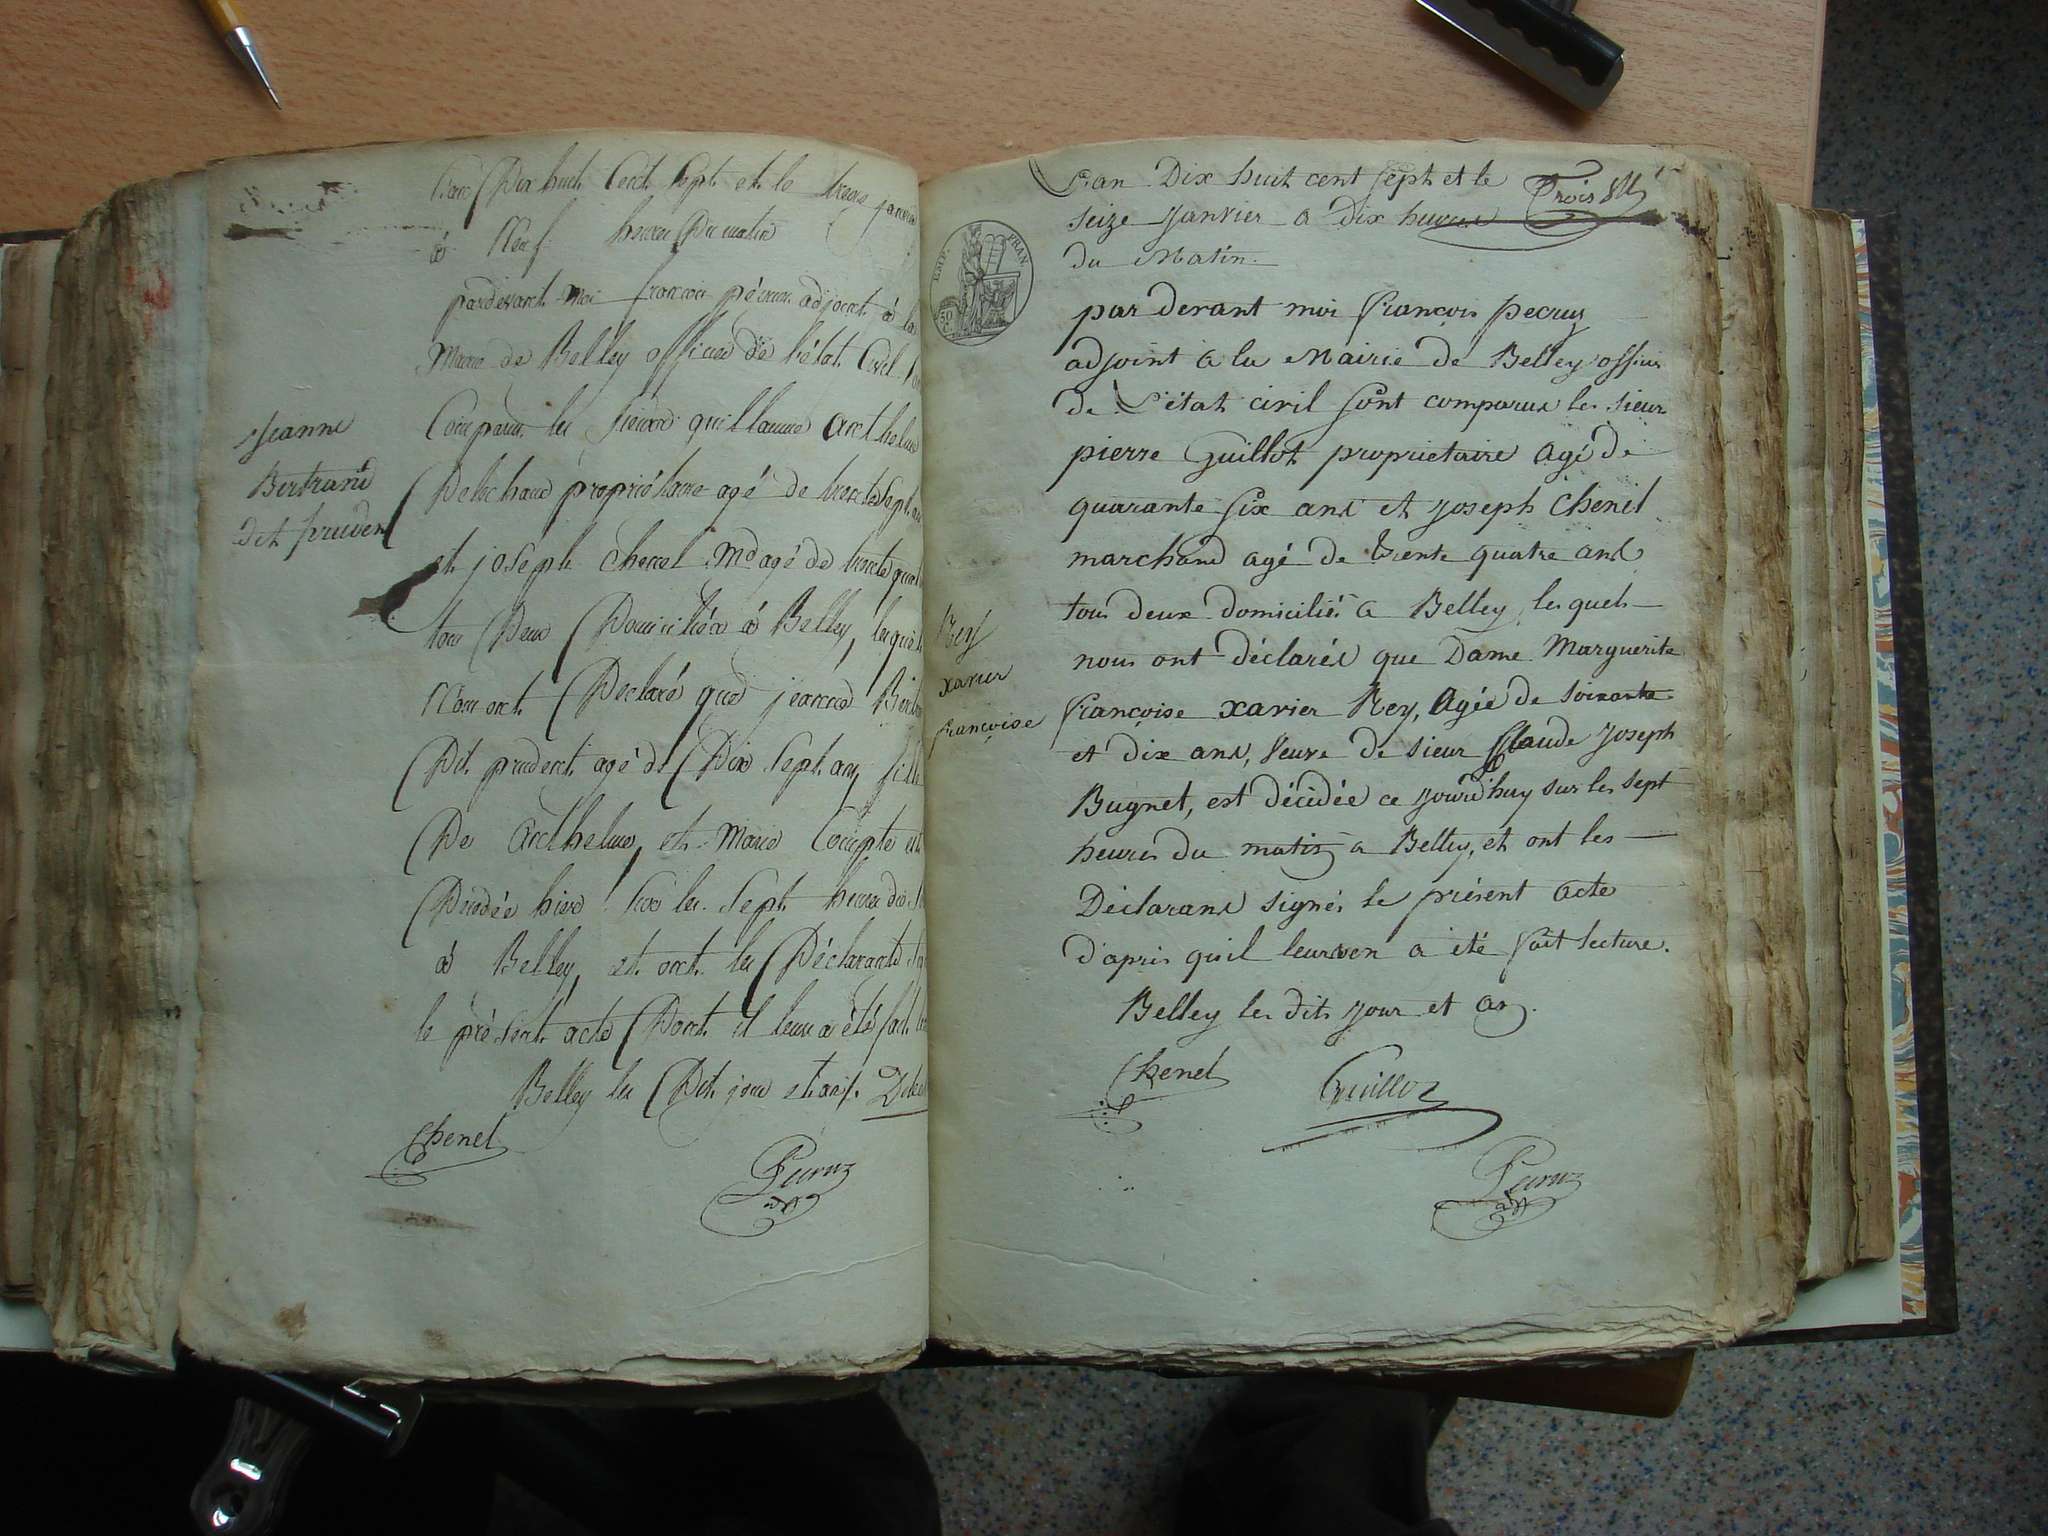 L'an Dix huit Cent Sept et le treize janvier
à Neuf heures Du matin
pardevant moi françois pécruz adjoint à la
Mairie de Belley officier de l'état Civil sont
Comparus les sieurs guillaume Anthelme
Delachaux propriétaire agé de trente sept ans
et joseph chenel Md agé de trente quatre
tous Deux Domiciliés à Belley, lesquels
Nous ont Declaré que jeanne Bertrand
Dit prudent agé de Dix sept ans, fille
De Anthelme, et Marie Compte est
Décédée hier sur les sept heures du soir
à Belley, et ont les Déclarants signé
le présent acte Dont il leur a été fait
Belley les Dit jour et an.
Chenel
Pecruz
adjt
Jeanne
Bertrand
dit pruden
L'an Dix huit cent sept et le
seize Janvier a Dix heures
du Matin.
Trois
EMP. FRAN.
50 C.
par devant moi françois pecruz
adjoint a la Mairie de Belley officier
de L'état civil sont comparus les sieur
pierre Guillot proprietaire agé de
quarante six ans et Joseph Chenel
marchand agé de trente quatre ans
tous deux domiciliés a Belley, les quels
nous ont déclarés que Dame Marguerite
françoise xavier Rey, Agée de soixante
et dix ans, veuve de sieur Claude Joseph
Bugnet, est décédée ce jourd'huy sur les sept
heures du matin a Belley, et ont les
Déclarans signés le présent acte
d'après qu'il leur en a été fait lecture.
Belley les dits jour et an.
Chenel
Guillot
Pecruz
adjt
Rey
xavier
françoise